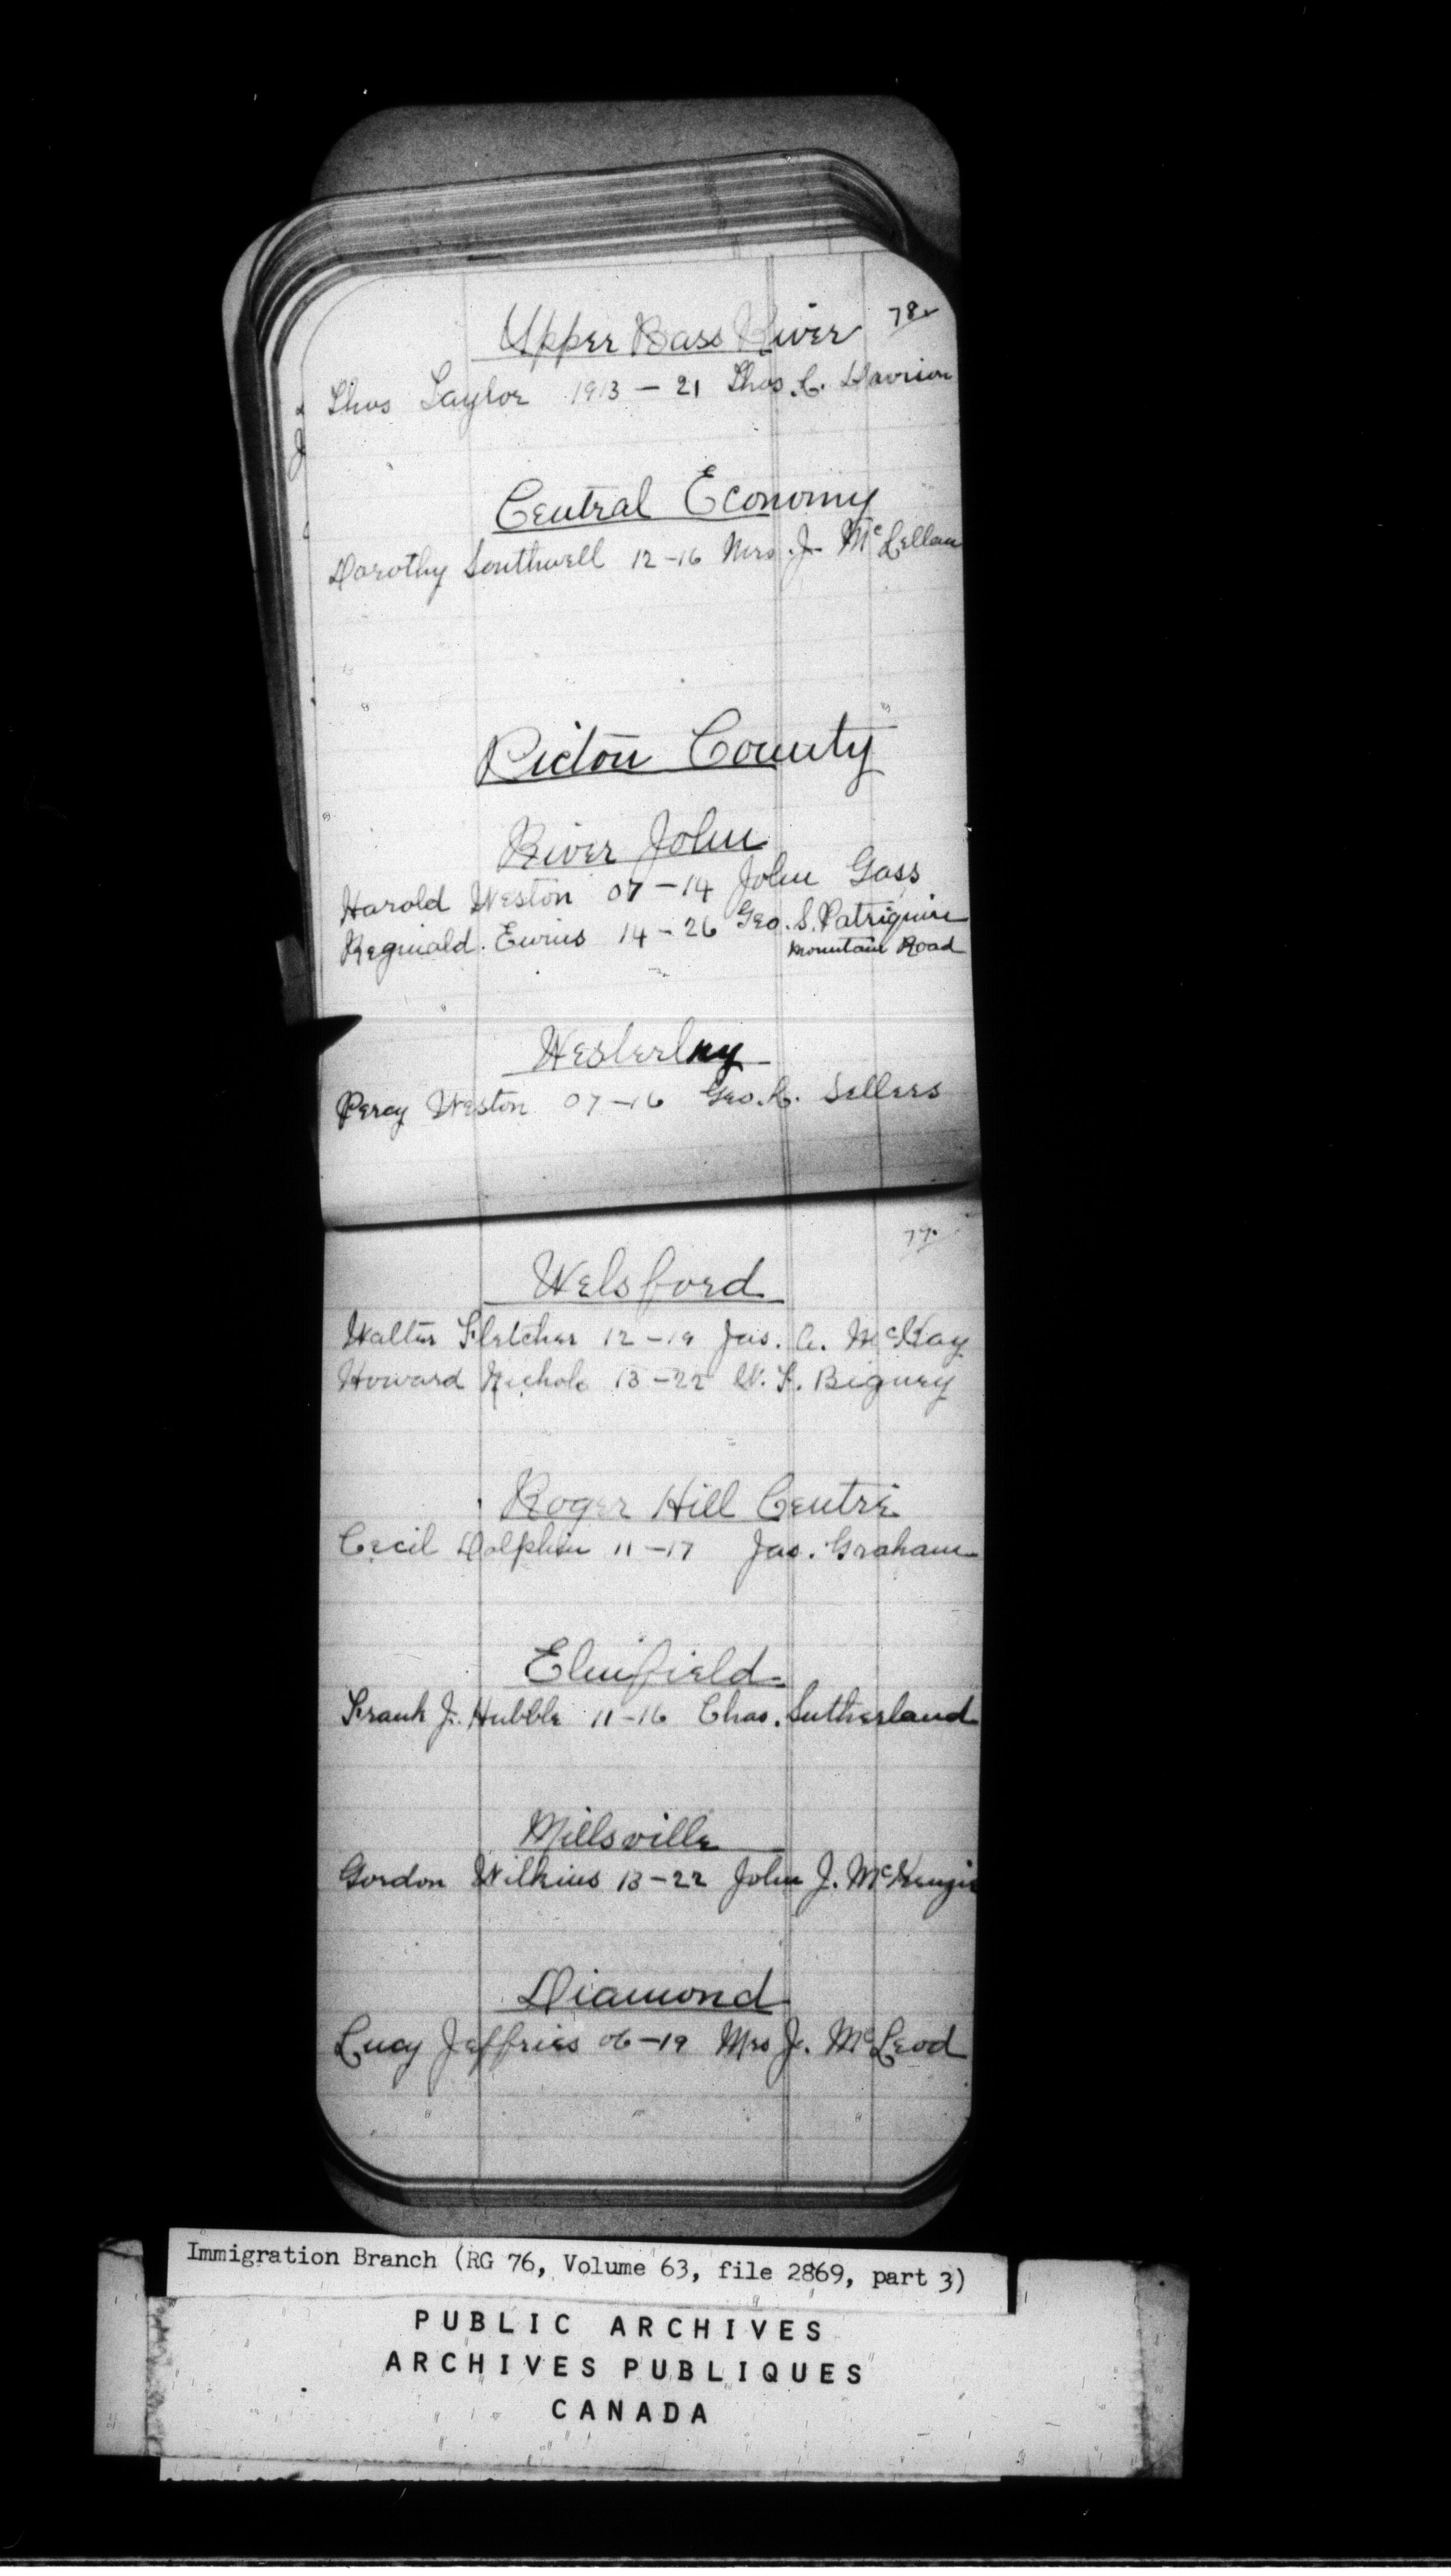 78.
Upper Bass River
Thos Taylor 1913 – 21 Thos. C. Davison
Central Economy
Dorothy Southwell 12 – 16 Mrs. J. McLellan
Pictou County
River John
Harold Weston 07 – 14 John Gass
Reginald. Ewins 14 – 26 Geo. S. Patriquin
Mountain Road
Percy Weston 07 – 16 Geo. Sellers
Welsford
Walter Fletcher 12 – 19 Jas. A. McKay
Howard Nichols 13 – 22 W. F. Bigney
Roger Hill Centre
Cecil Dolphin 11 – 17 Jas. Graham
Elmfield
Frank J. Hubble 11 – 16 Chas. Sutherland
Millsville
Gordon Wilkins 13 – 22 John J. McKenzie
Diamond
Lucy Jeffries 06 – 19 Mrs J. McLeod
Immigration Branch (RG 76, Volume 63, file 2869, part 3)
PUBLIC ARCHIVES
ARCHIVES PUBLIQUES
CANADA